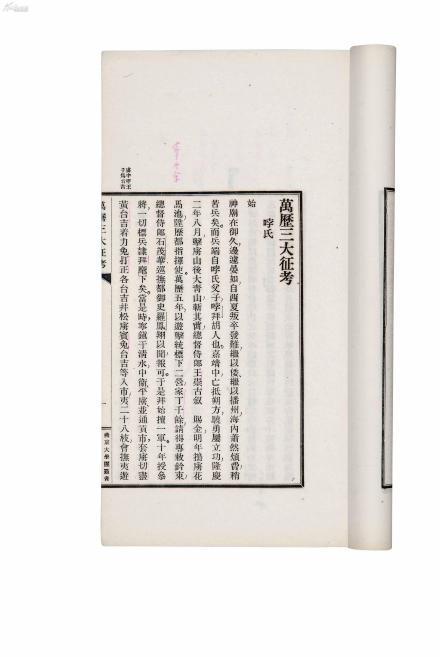 萬歷三大征考
哱氏
始
神廟在御久邊遽晏如自西夏叛卒發難繼以倭繼以播州海內蕭然煩費稍
苦兵矣而兵端自哱氏父子哱拜胡人也嘉靖中亡抵朔方驍勇屢立功隆慶
二年八月擊虜山後大青山斬其實總督侍郎王崇古叙 賜金明年搗虜花
馬池陞歷都指揮使萬歷五年以遊擊統標下二營家丁千餘請得專敕鈐束
總督侍郎石茂華巡撫都御史羅鳳翔以聞報可于是拜始擅一軍十年授參
將一切標兵隸拜麾下矣當是時寧鎮于清水中衛平虜並通貢市套虜切盡
黃台吉着力兔打正各台吉并松虜賓兔台吉等入市夷二十八枝會撫夷遊
萬歷三大征考
一
燕京大學圖書館